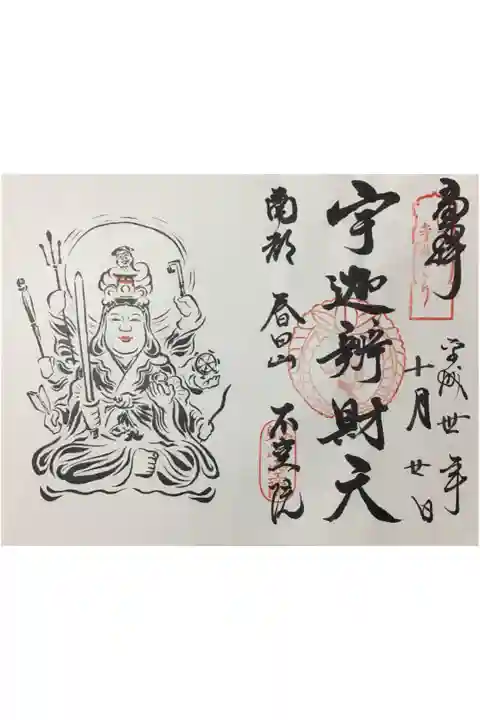 奉拝
平成丗年
十月廿日
宇迦辨財天
南都 春日山 不空院